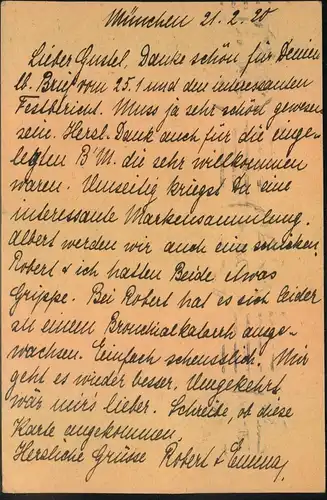 München 21.2.20
Lieber Gustel. Danke schön für Deinen
lb. Brief vom 25.1 und den interessanten
Festbericht. Muss ja sehr schön gewesen
sein. Herzl. Dank auch für die einge-
legten B M. die sehr willkommen
waren. Umseitig kriegst Du eine
interessante Markensammlung.
Albert werden wir auch eine schicken.
Robert & ich hatten Beide etwas
Grippe. Bei Robert hat es sich leider
zu einem Bronchialkatarrh ausge-
wachsen. Einfach scheusslich. Mir
geht es wieder besser. Umgekehrt
wär mir's lieber. Schreibe, ob diese
Karte angekommen.
Herzliche Grüsse Robert & Emma,